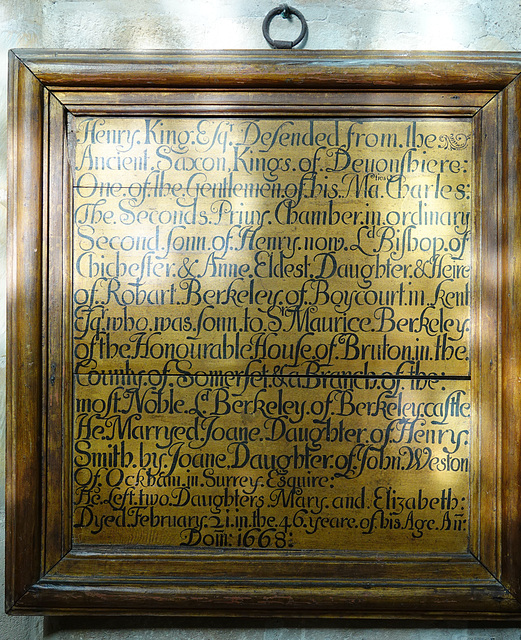 Henry. King. Eſqr. Deſended from. the
Ancient. Saxon. Kings. of. Devonſhiere:
One. of. the. Gentlemen. of his. Maties. Charles:
The. Seconds. Privy. Chamber. in. ordinary
Second. ſonn. of. Henry. now. Ld. Biſhop. of
Chicheſter. & Anne. Eldest. Daughter. & Heire
of. Robart. Berkeley. of. Boycourt. in. kent
Eſq. who. was. ſonn. to. Sr. Maurice. Berkeley.
of the Honourable Houſe. of. Bruton. in. the.
County. of. Somerſet. & a Branch. of the:
moſt. Noble. Ld. Berkeley. of. Berkeley. caſtle
He. Marryed. Joane. Daughter. of. Henry:
Smith. by. Joane. Daughter. of. John. Weston
Of. Ockham. in. Surrey. Esquire:
He. Left. two. Daughters. Mary. and. Elizabeth:
Dyed. February: 21. in. the. 46. yeare. of his. Age. An:
Dom: 1668: